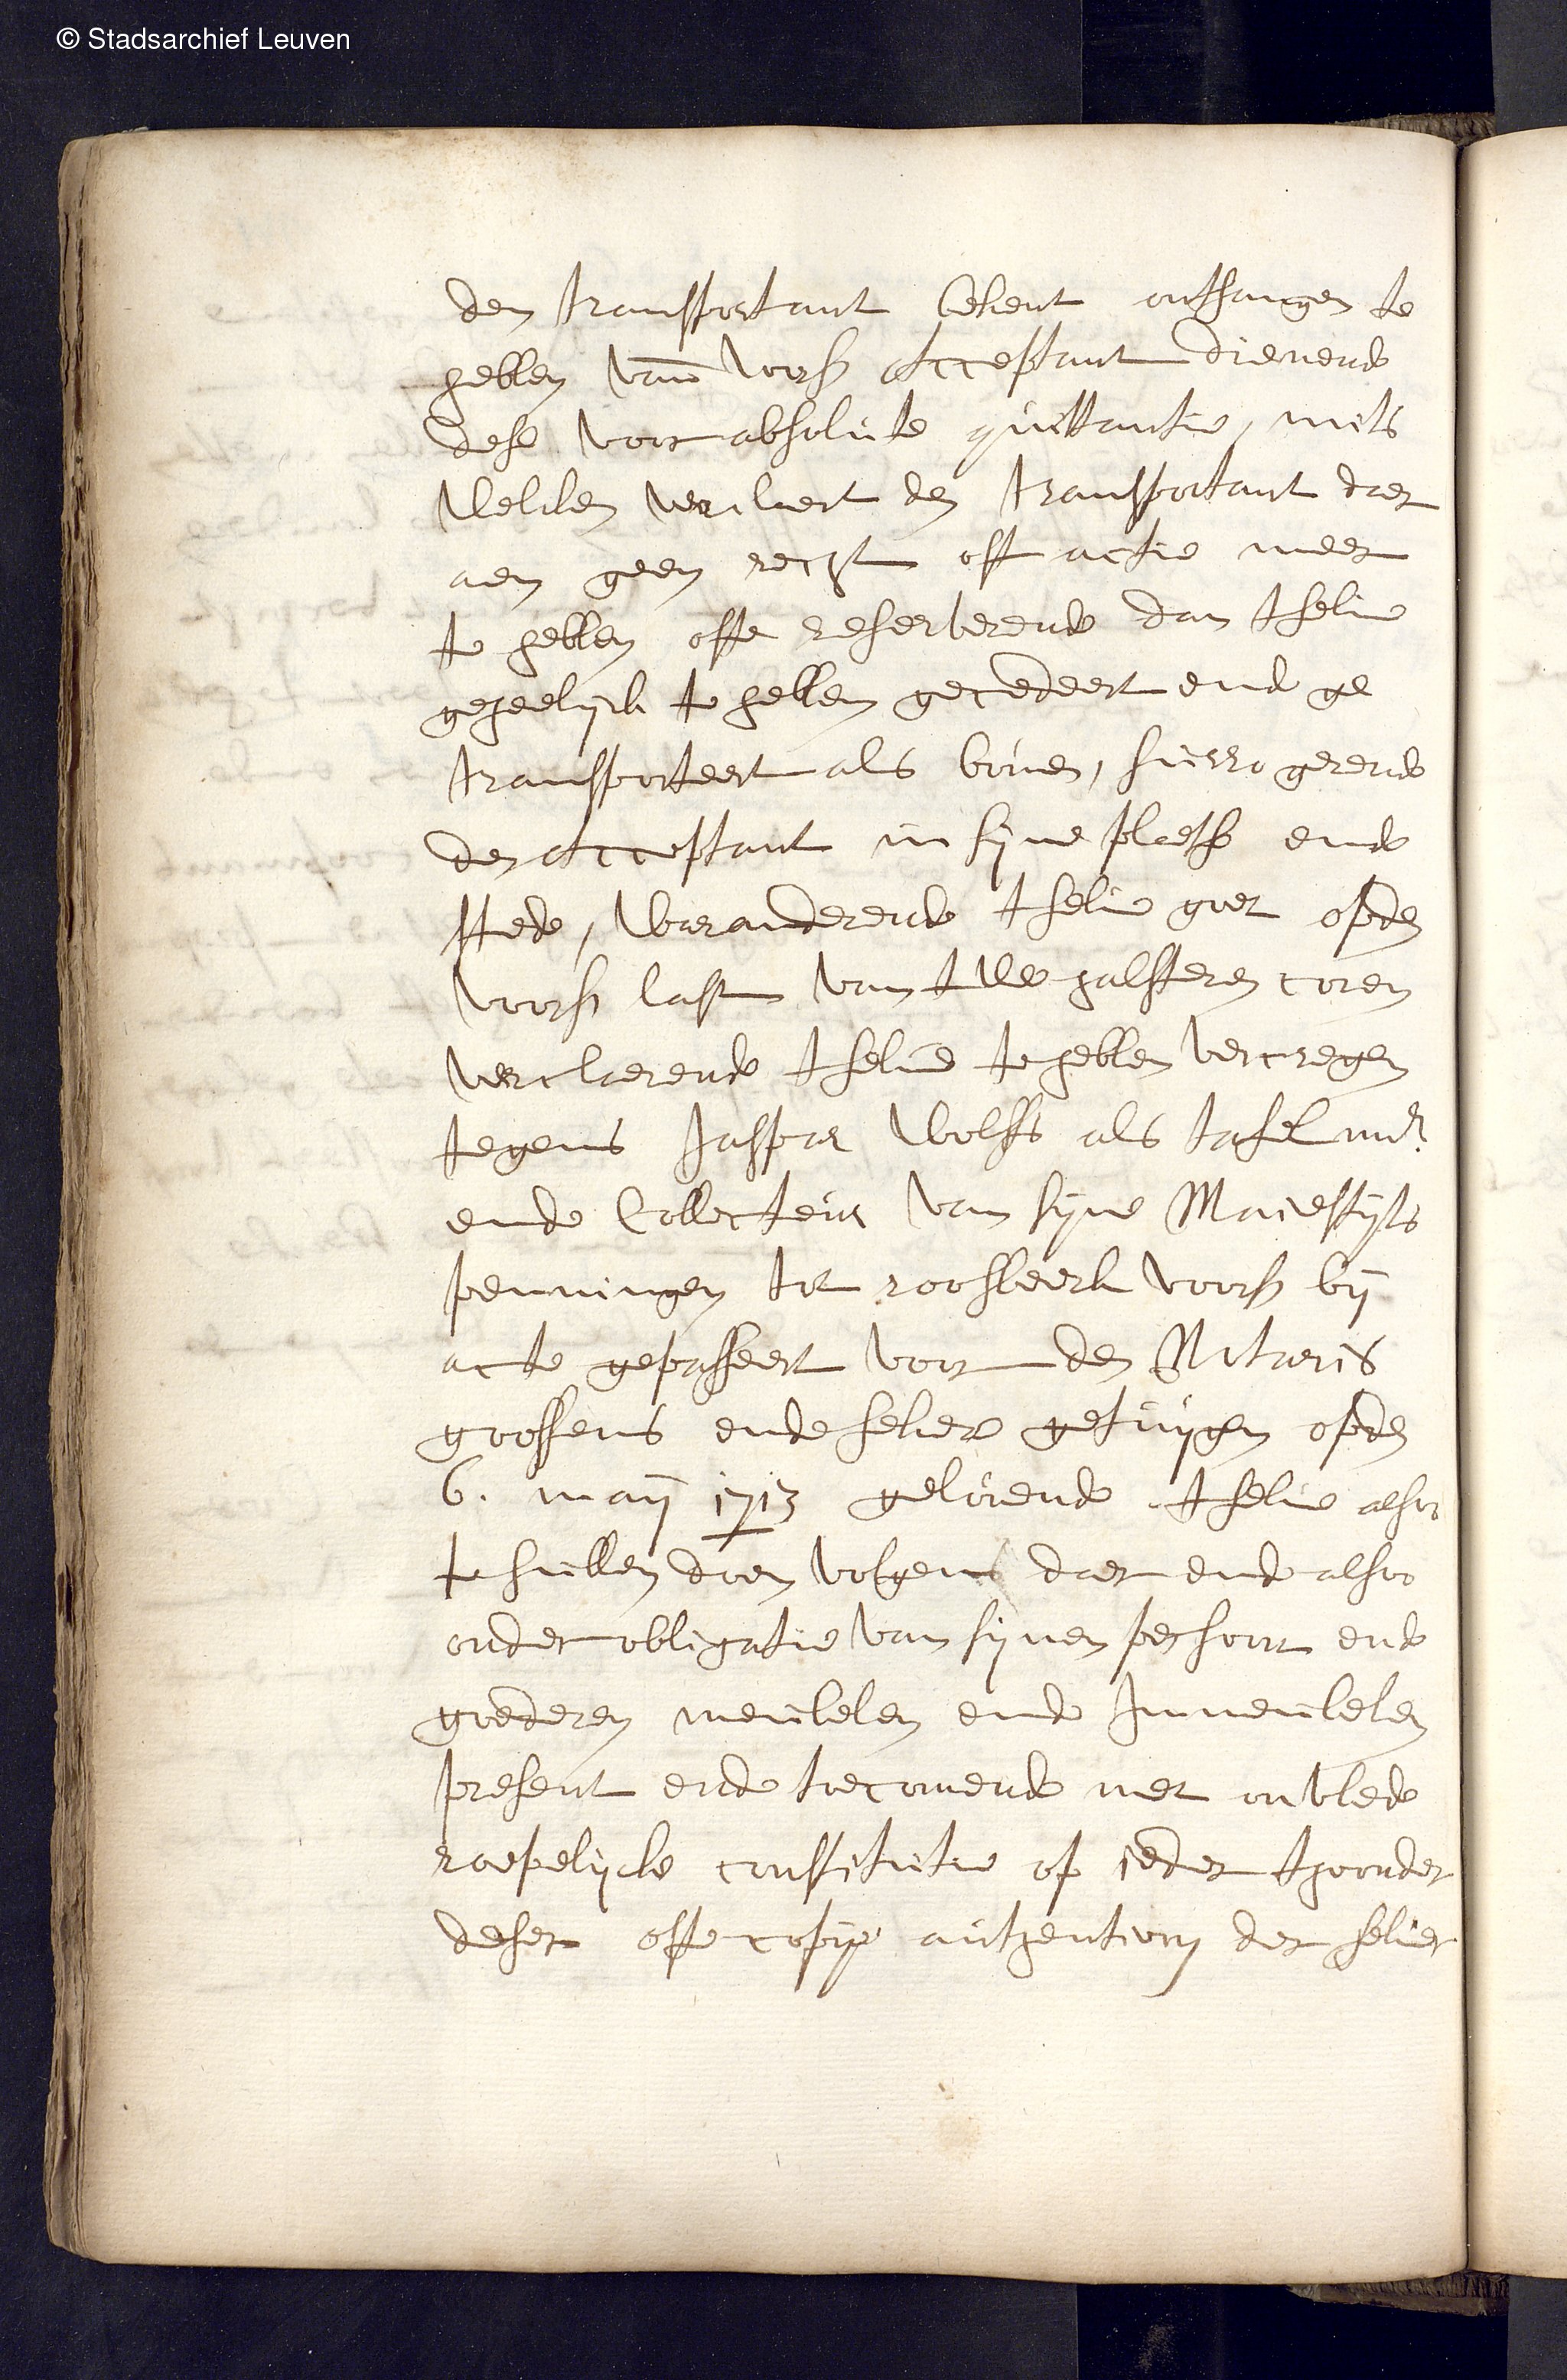 © Stadsarchief Leuven
den transportant bekent ontfangen te
hebben van̄ vors acceptant dienende
dese voor absolute quittantie, mits
welcken verclaert den transportant daer
aen geen recht oft actie meer
te hebben ofte reserverende dan tselve
geheelyck te hebben gecedeert ende ge
transporteert als boven, surrogerende
den acceptant in syne plaetse ende
stede, waranderende tselve goet opden
voors last van twe halsteren coren
verclaerende tselve te hebben vercregen
tegens Jaspar Wolffs als tafelmr
ende Collecteur van syne Maiestyts
penningen tot roosbeeck voors bij
acte gepasseert voor den Notaris
goossens ende seker getuygen opden
6. maij 1713 gelovende tselve alsoo
te sullen doen volgens daer ende alsoo
onder obligatie van synen persoon ende
goederen meubelen ende Immeubelen
present ende toecomende met onwede
roepelycke constitutie op ieder thoonder
deser ofte copije authenticq der selver